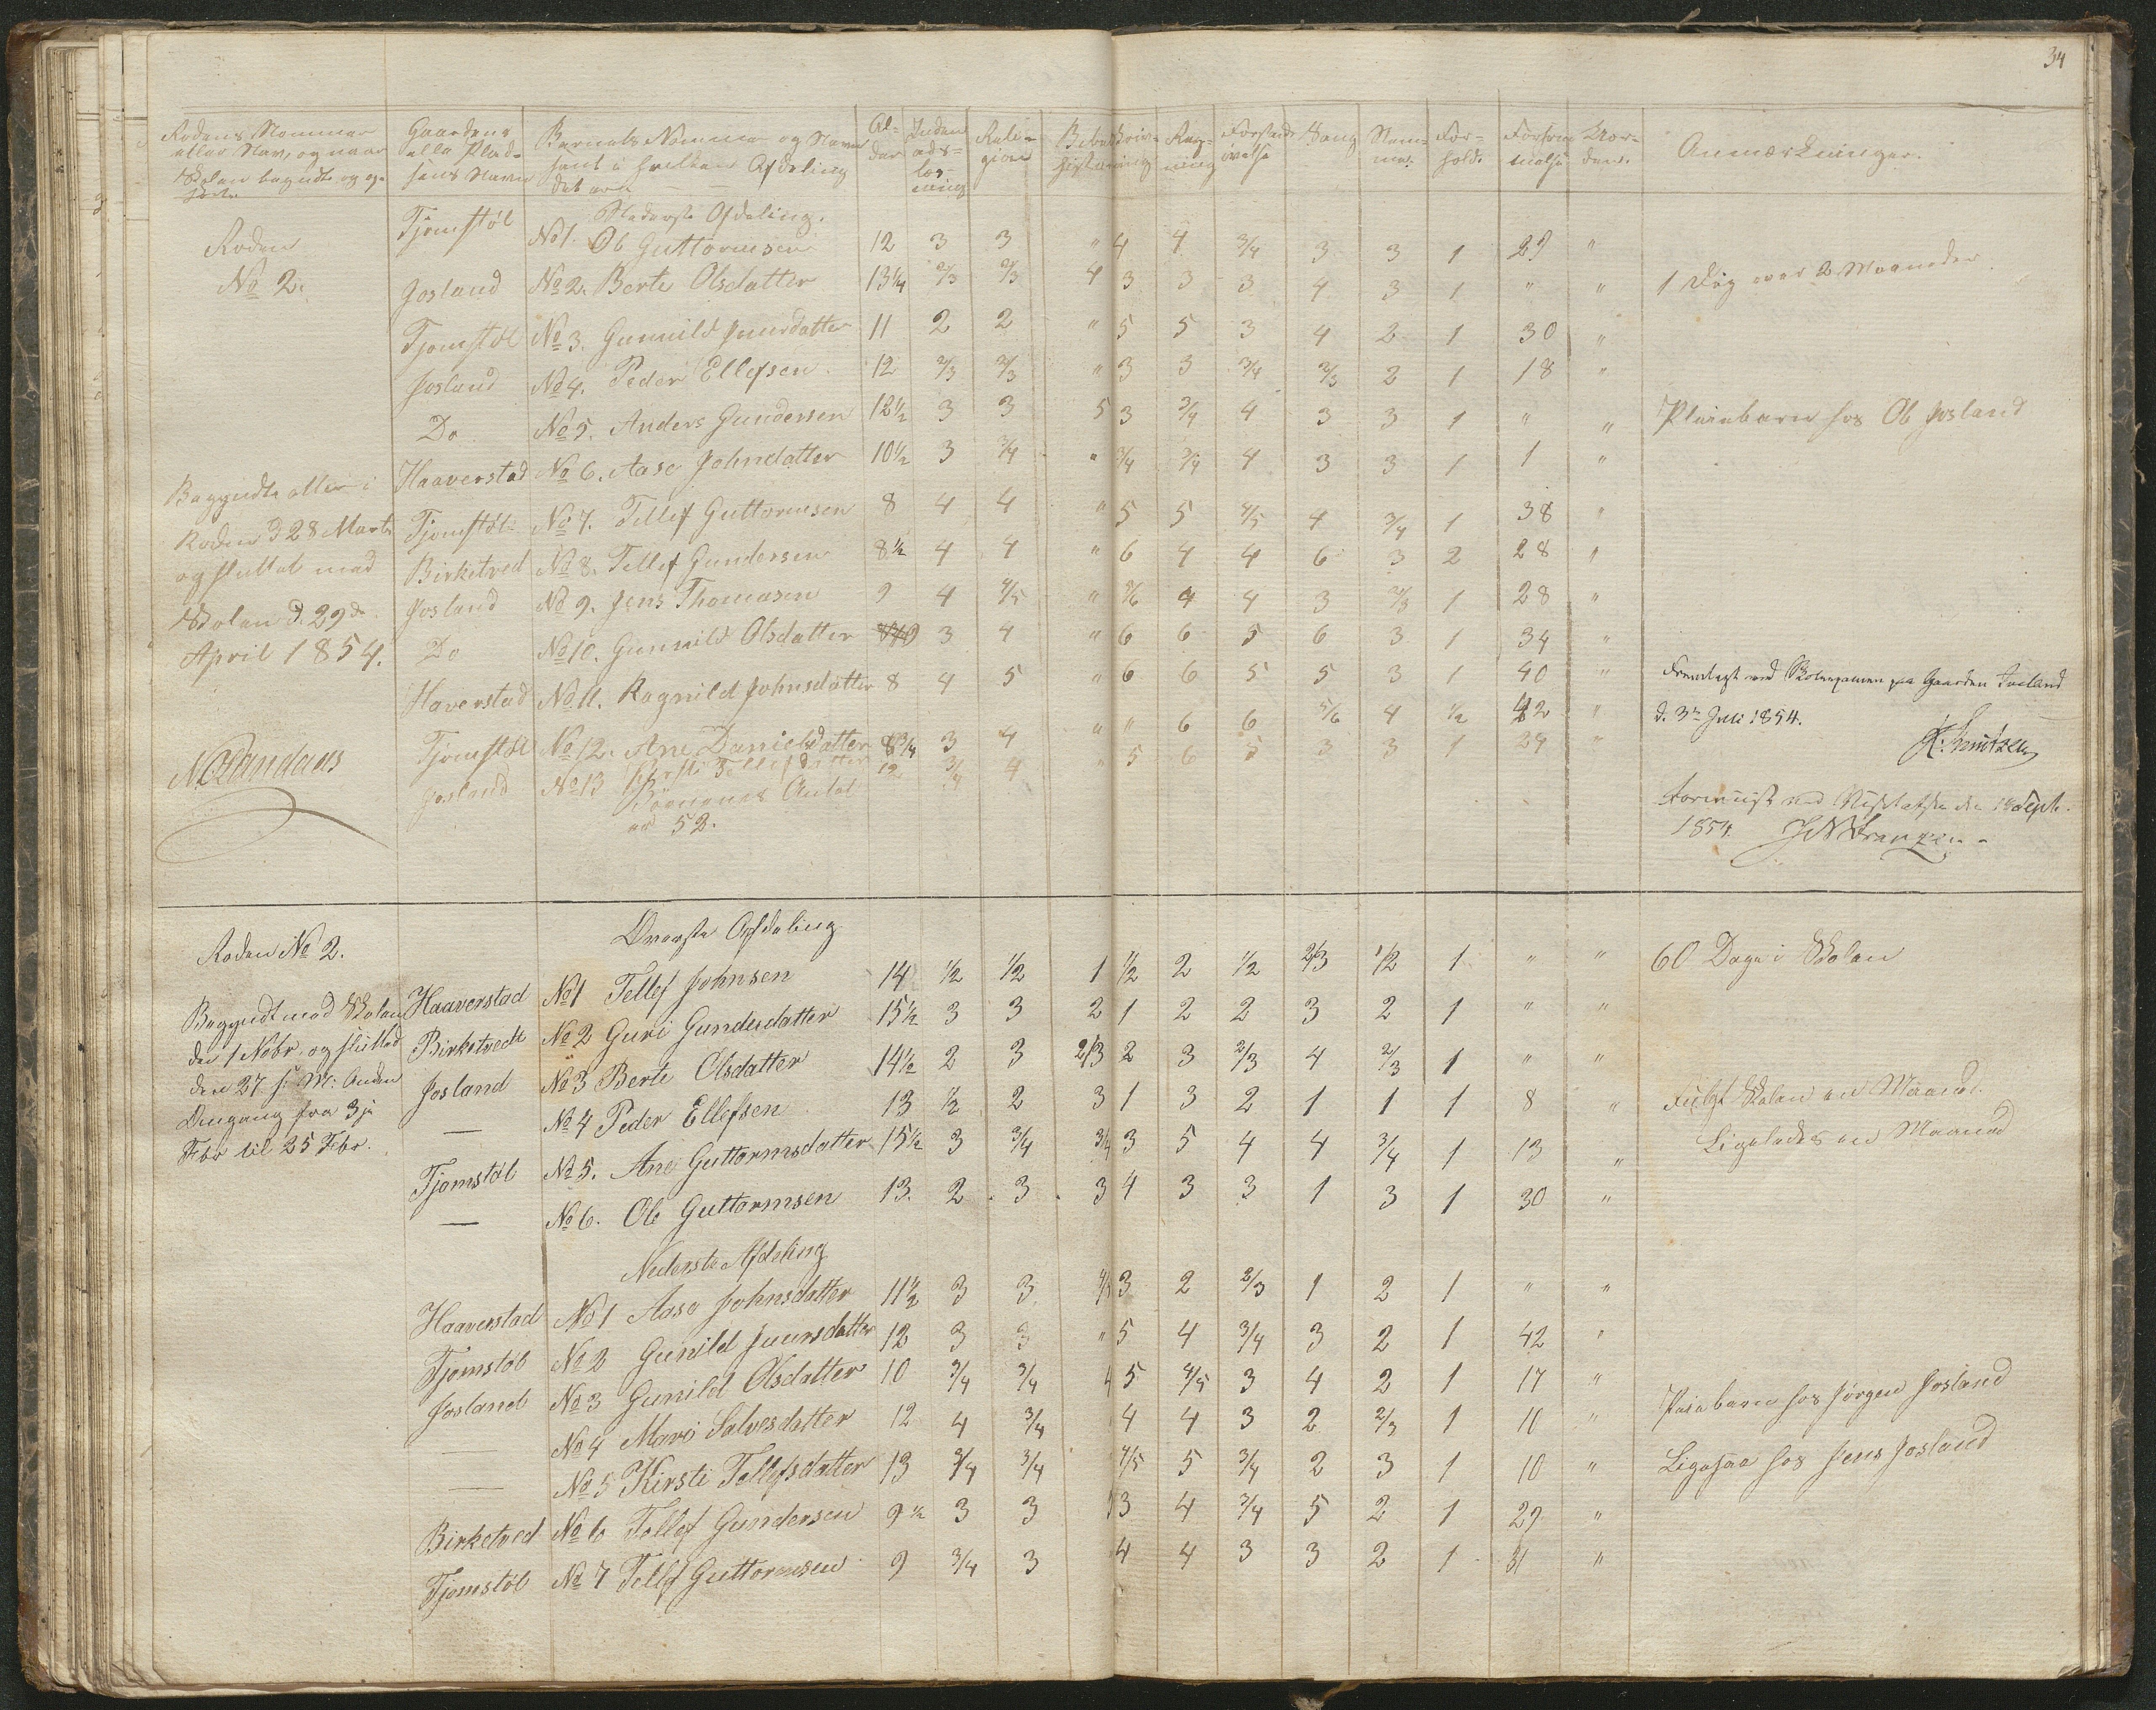 34
Rodens Nommer eller Navn, og naar Skolen begyndte og op-
Gaardens eller Plad-sens Navn
Barnets Nommer og Navn samt i hvilken Afdeling det er
Al-der
Inden-ads-læs-ning
Reli-gion
Skriv-ning
Reg-ning
Forstands-øvelse
Sang
Nem-me
For-hold
Forsøm-melse
Anmærkninger.
Nederste Afdeling.
Roden
No 2.
Tjomstøl No 1. Ole Guttormsen 12 3 3 " 4 4 3/4 3 3 1 29 "
Josland No 2. Berte Olsdatter 13 1/4 2/3 2/3 4 3 3 3 4 3 1 " " 1 Dag over 2 Maaneder
Tjomstøl No 3. Gunnild Jensdatter 11 2 2 " 5 5 3 4 2 1 30 "
Josland No 4. Peder Ellefsen 12 2/3 2/3 " 3 3 3/4 2/3 2 1 18 "
Do No 5. Anders Gundersen 12 1/2 3 3 5 3 3/4 4 3 3 1 " " Pleiebarn hos Ole Josland
Haaverstad No 6. Aase Johnsdatter 10 1/2 3 3/4 " 3/4 3/4 4 3 3 1 1 "
Tjomstøl No 7. Tellef Guttormsen 8 4 4 " 5 5 4/5 4 3/4 1 38 "
Birketved No 8. Tellef Gundersen 8 1/2 4 4 " 6 4 4 6 3 2 28 "
Josland No 9. Jens Thomasen 9 4 4/5 " 5/6 4 4 3 2/3 1 28 "
Do No 10. Gunnild Olsdatter 3 4 " 6 6 5 6 3 1 34 "
Haverstad No 11. Ragnild Johnsdatter 8 4 5 " 6 6 5 5 3 1 40 "
Tjomstøl No 12. Ane Danielsdatter 8 3/4 3 4 " " 6 6 5/6 4 1/2 42 "
Josland No 13 Kirsti Tellefsdatter 12 3/4 4 " 5 6 5 3 3 1 24 "
Børnenes Antal er 52.
Begyndte atter i
Roden d 28 Marts
og sluttet med
Skolen d. 29de
April 1854.
Fremlagt ved Skoleexamen paa Gaarden Josland
d. 3de Juli 1854.
K. Knutzen
Foreviist ved Visitatsen den 18 Septb.
1854.
Roden No 2.
Øverste Afdeling
Begyndt med Skolen
den 1 Nobr. og slutted
den 27 s: M: Anden
Omgang fra 3je
Febr til 25 Febr.
Haaverstad No 1 Tellef Johnsen 14 1/2 1/2 1 1/2 2 1/2 2/3 1/2 1 " " 60 Dage i Skolen
Birketvedt No 2 Guri Gundersdatter 15 1/2 3 3 2 1 2 2 3 2 1 " "
Josland No 3 Berte Olsdatter 14 1/2 2 3 2/3 2 3 2/3 4 2/3 1 " "
— No 4 Peder Ellefsen 13 1/2 2 3 1 3 2 1 1 1 8 " Fulgt Skolen en Maaned.
Tjomstøl No 5. Ane Guttormsdatter 15 1/2 3 3/4 3/4 3 5 4 4 3/4 1 13 " Ligeledes en Maaned
— No 6. Ole Guttormsen 13. 2 3 3 4 3 3 1 3 1 30 "
Nederste Afdeling
Haaverstad No 1 Aase Johnsdatter 11 1/2 3 3 3 2 2/3 1 2 1 " "
Tjomstøl No 2 Gunild Jensdatter 12 3 3 " 5 4 3/4 3 2 1 42 "
Josland No 3 Gunild Olsdatter 10 3/4 3/4 5 4/5 3 4 2 1 17 "
— No 4 Mari Salvesdatter 12 4 3/4 4 4 3 2 2/3 1 11 " Pleiebarn hos Jørgen Josland
— No 5 Kirsti Tellefsdatter 13 3/4 3/4 4/5 5 3/4 2 3 1 10 " Ligesaa hos Jens Josland
Birketved No 6 Tellef Gundersen 9 1/2 3 3 3 4 3/4 5 2 1 29 "
Tjomstøl No 7 Tellef Guttormsen 9 3/4 3 4 4 3 3 2 1 31 "